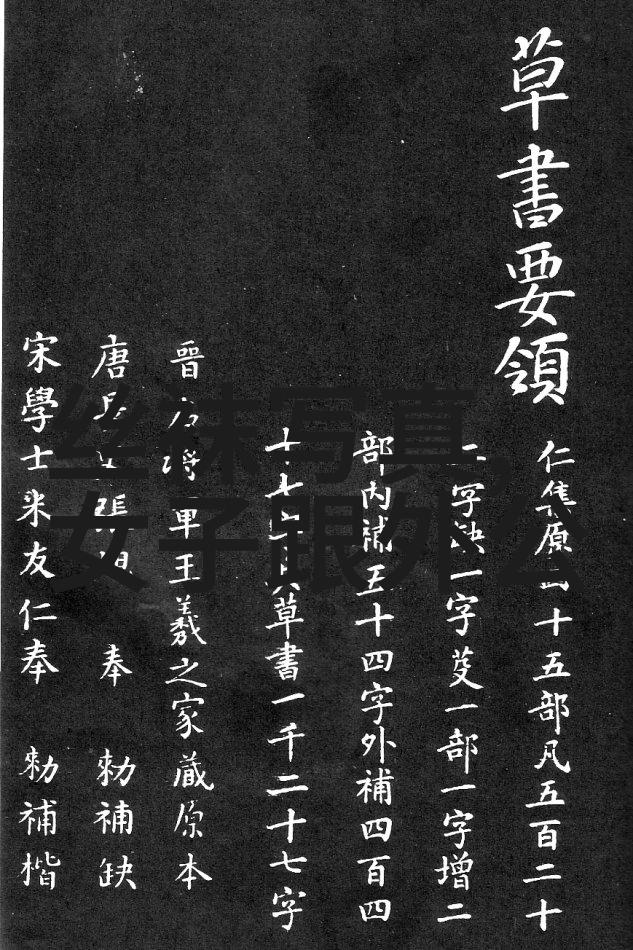 草書要領
仁集原十五部凡五百二十
二字缺一字芟一部一字增二
部内補五十四字外補四百四
十七字共草書一千二十七字
晉右將軍王羲之家藏原本
唐長史張旭 奉 勑補缺
宋學士米友仁奉 勑補楷
丝袜写真,
女子跟外公